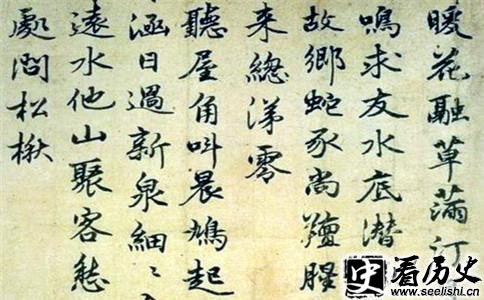 暖花融草滿汀
鳴求友水底潛
故鄉蛇豕尚羶腥
来總涕零
聽屋角叫晨鳩起
涵日過新泉細〻
遠水他山聚客愁
處問松楸
史 看历史
www.seelishi.cn